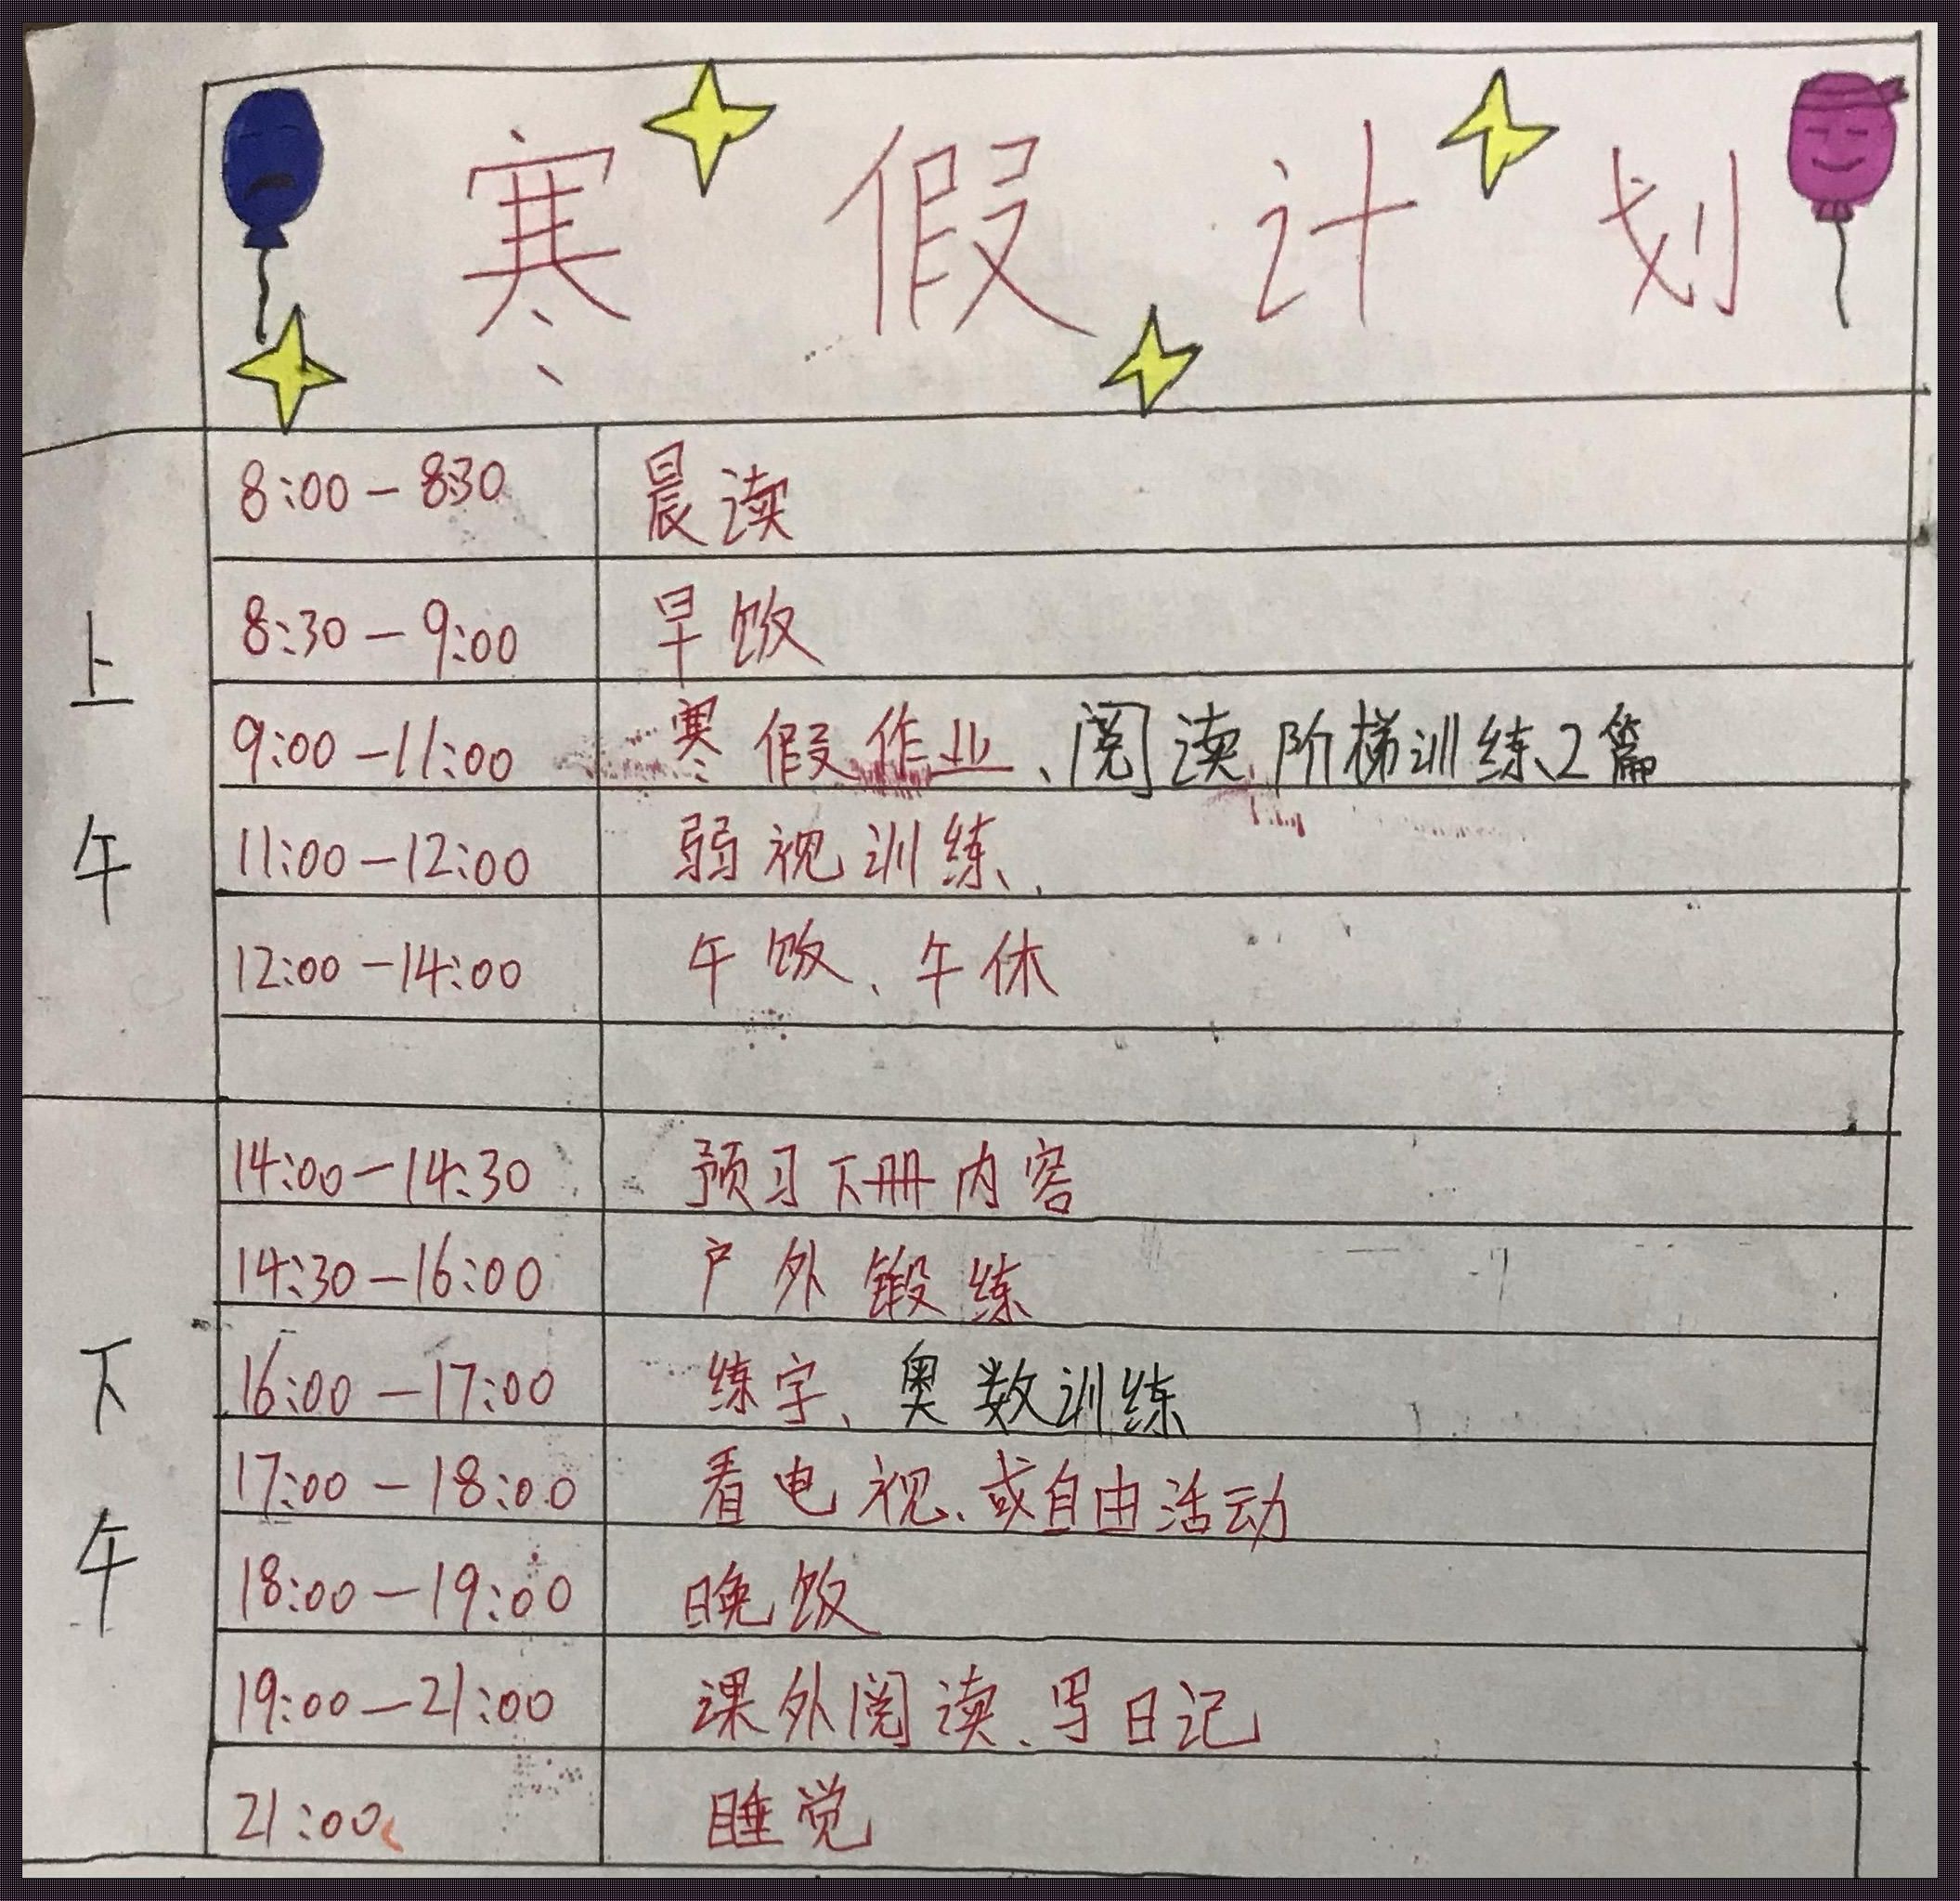 寒假计划
上午
8:00-830 晨读
8:30-9:00 早饭
9:00-11:00 寒假作业、阅读阶梯训练2篇
11:00-12:00 弱视训练、
12:00-14:00 午饭、午休
下午
14:00-14:30 预习下册内容
14:30-16:00 户外锻练
16:00-17:00 练字、奥数训练
17:00-18:00 看电视、或自由活动
18:00-19:00 晚饭
19:00-21:00 课外阅读、写日记
21:00 睡觉